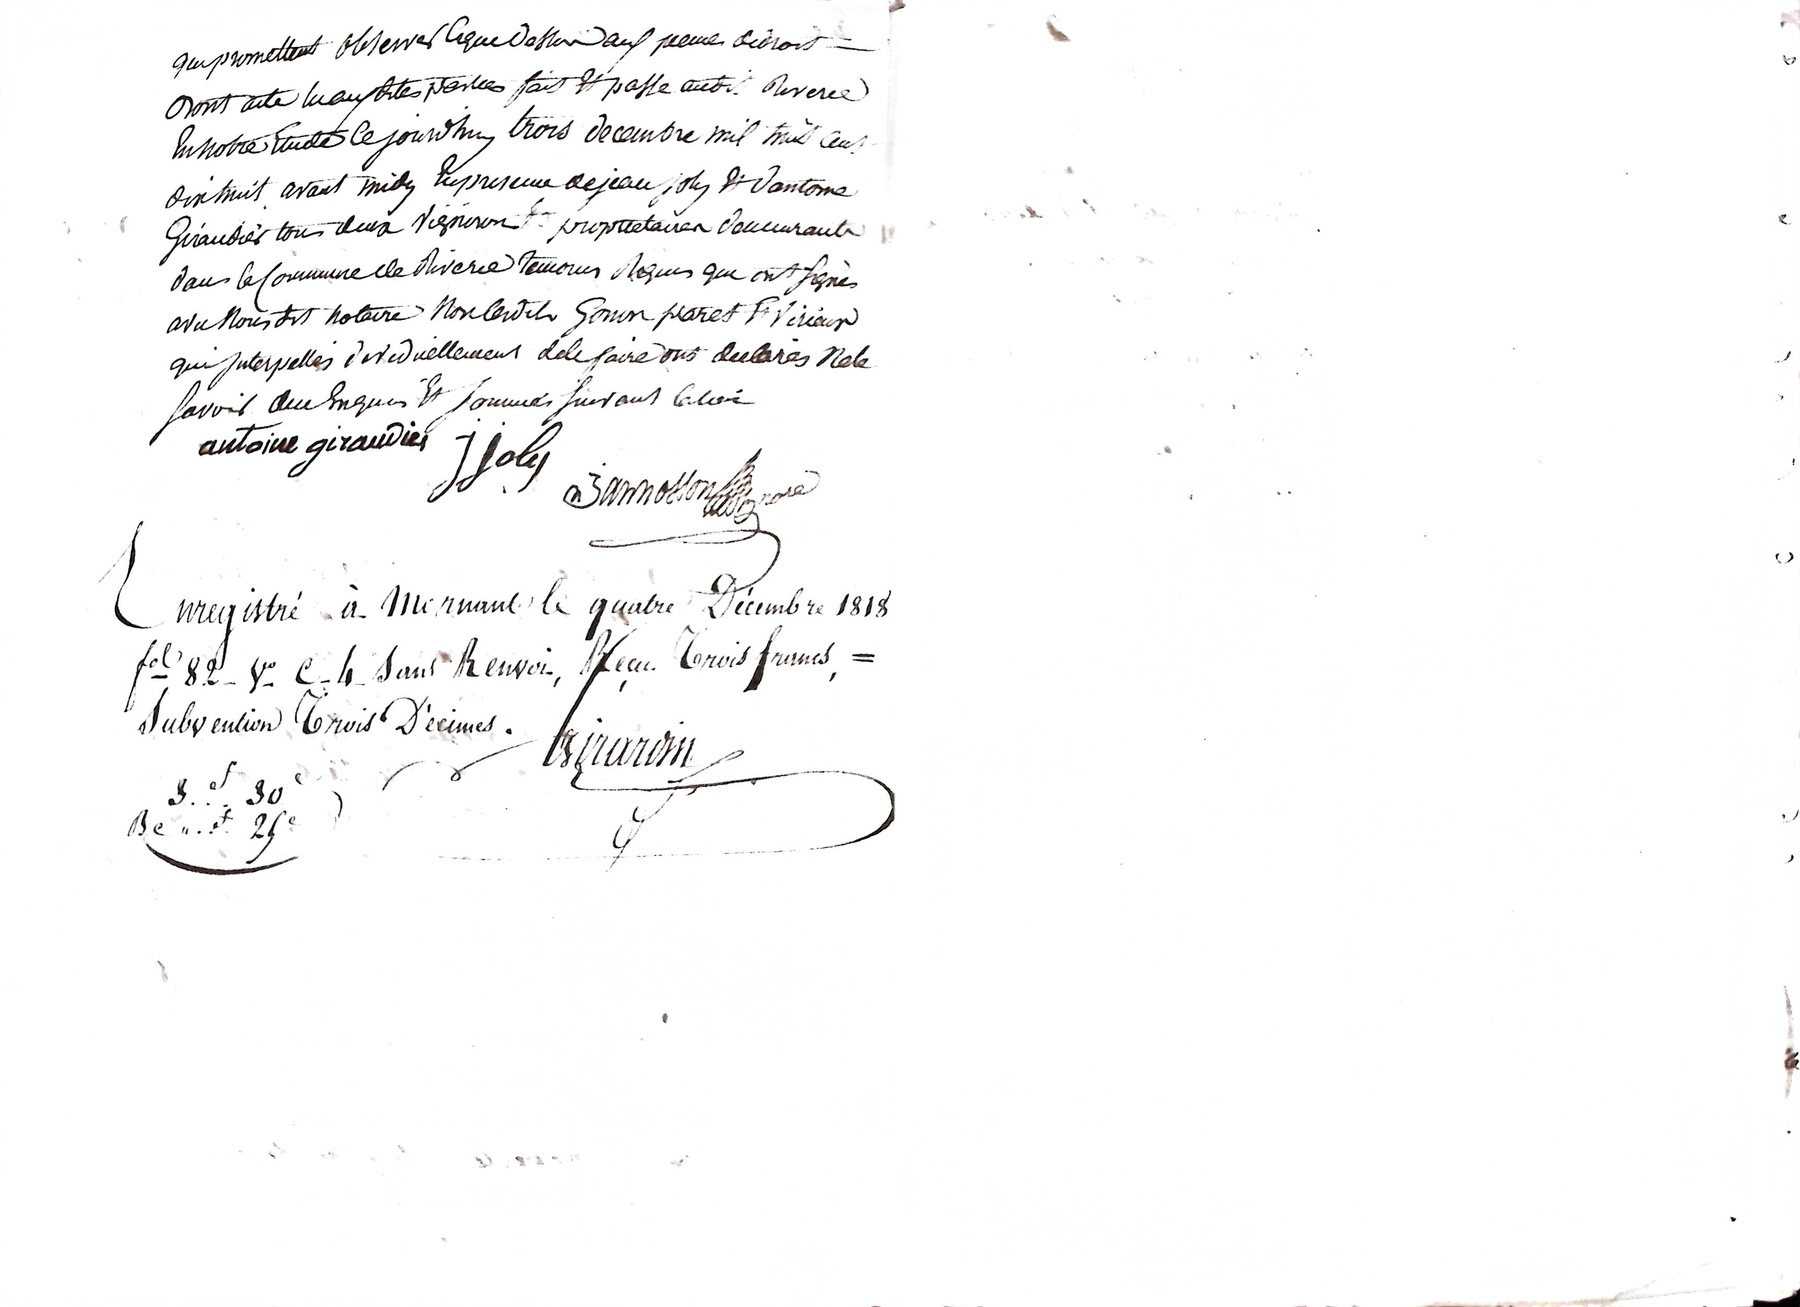 qui promettent observer ce que dessus aux peines de droit —
Dont acte lu auxdites parties fait et passé audit Riverie
En notre Etude Ce jourd'huy trois décembre mil huit cent
dix huit avant midy En presence de jean joly Et d'antoine
Giraudier tous deux vignerons Et propriétaires demeurants
dans la Commune de Riverie temoins Requis qui ont signés
avec Nous dit notaire Non lesdits Gonin paret Et Virieux
qui Interpellés individuellement de le faire ont declarés Ne le
savoir de ce Enquis Et sommés suivant la loi
antoine giraudier
j joly
Jannosson notaire
Enregistré à Mornant le quatre Décembre 1818
fol 82 vo C. 4 Sans Renvoi, Reçu Trois francs, =
Subvention Trois Décimes.
Girardin
3. f 30 c
Be ". f. 25 c